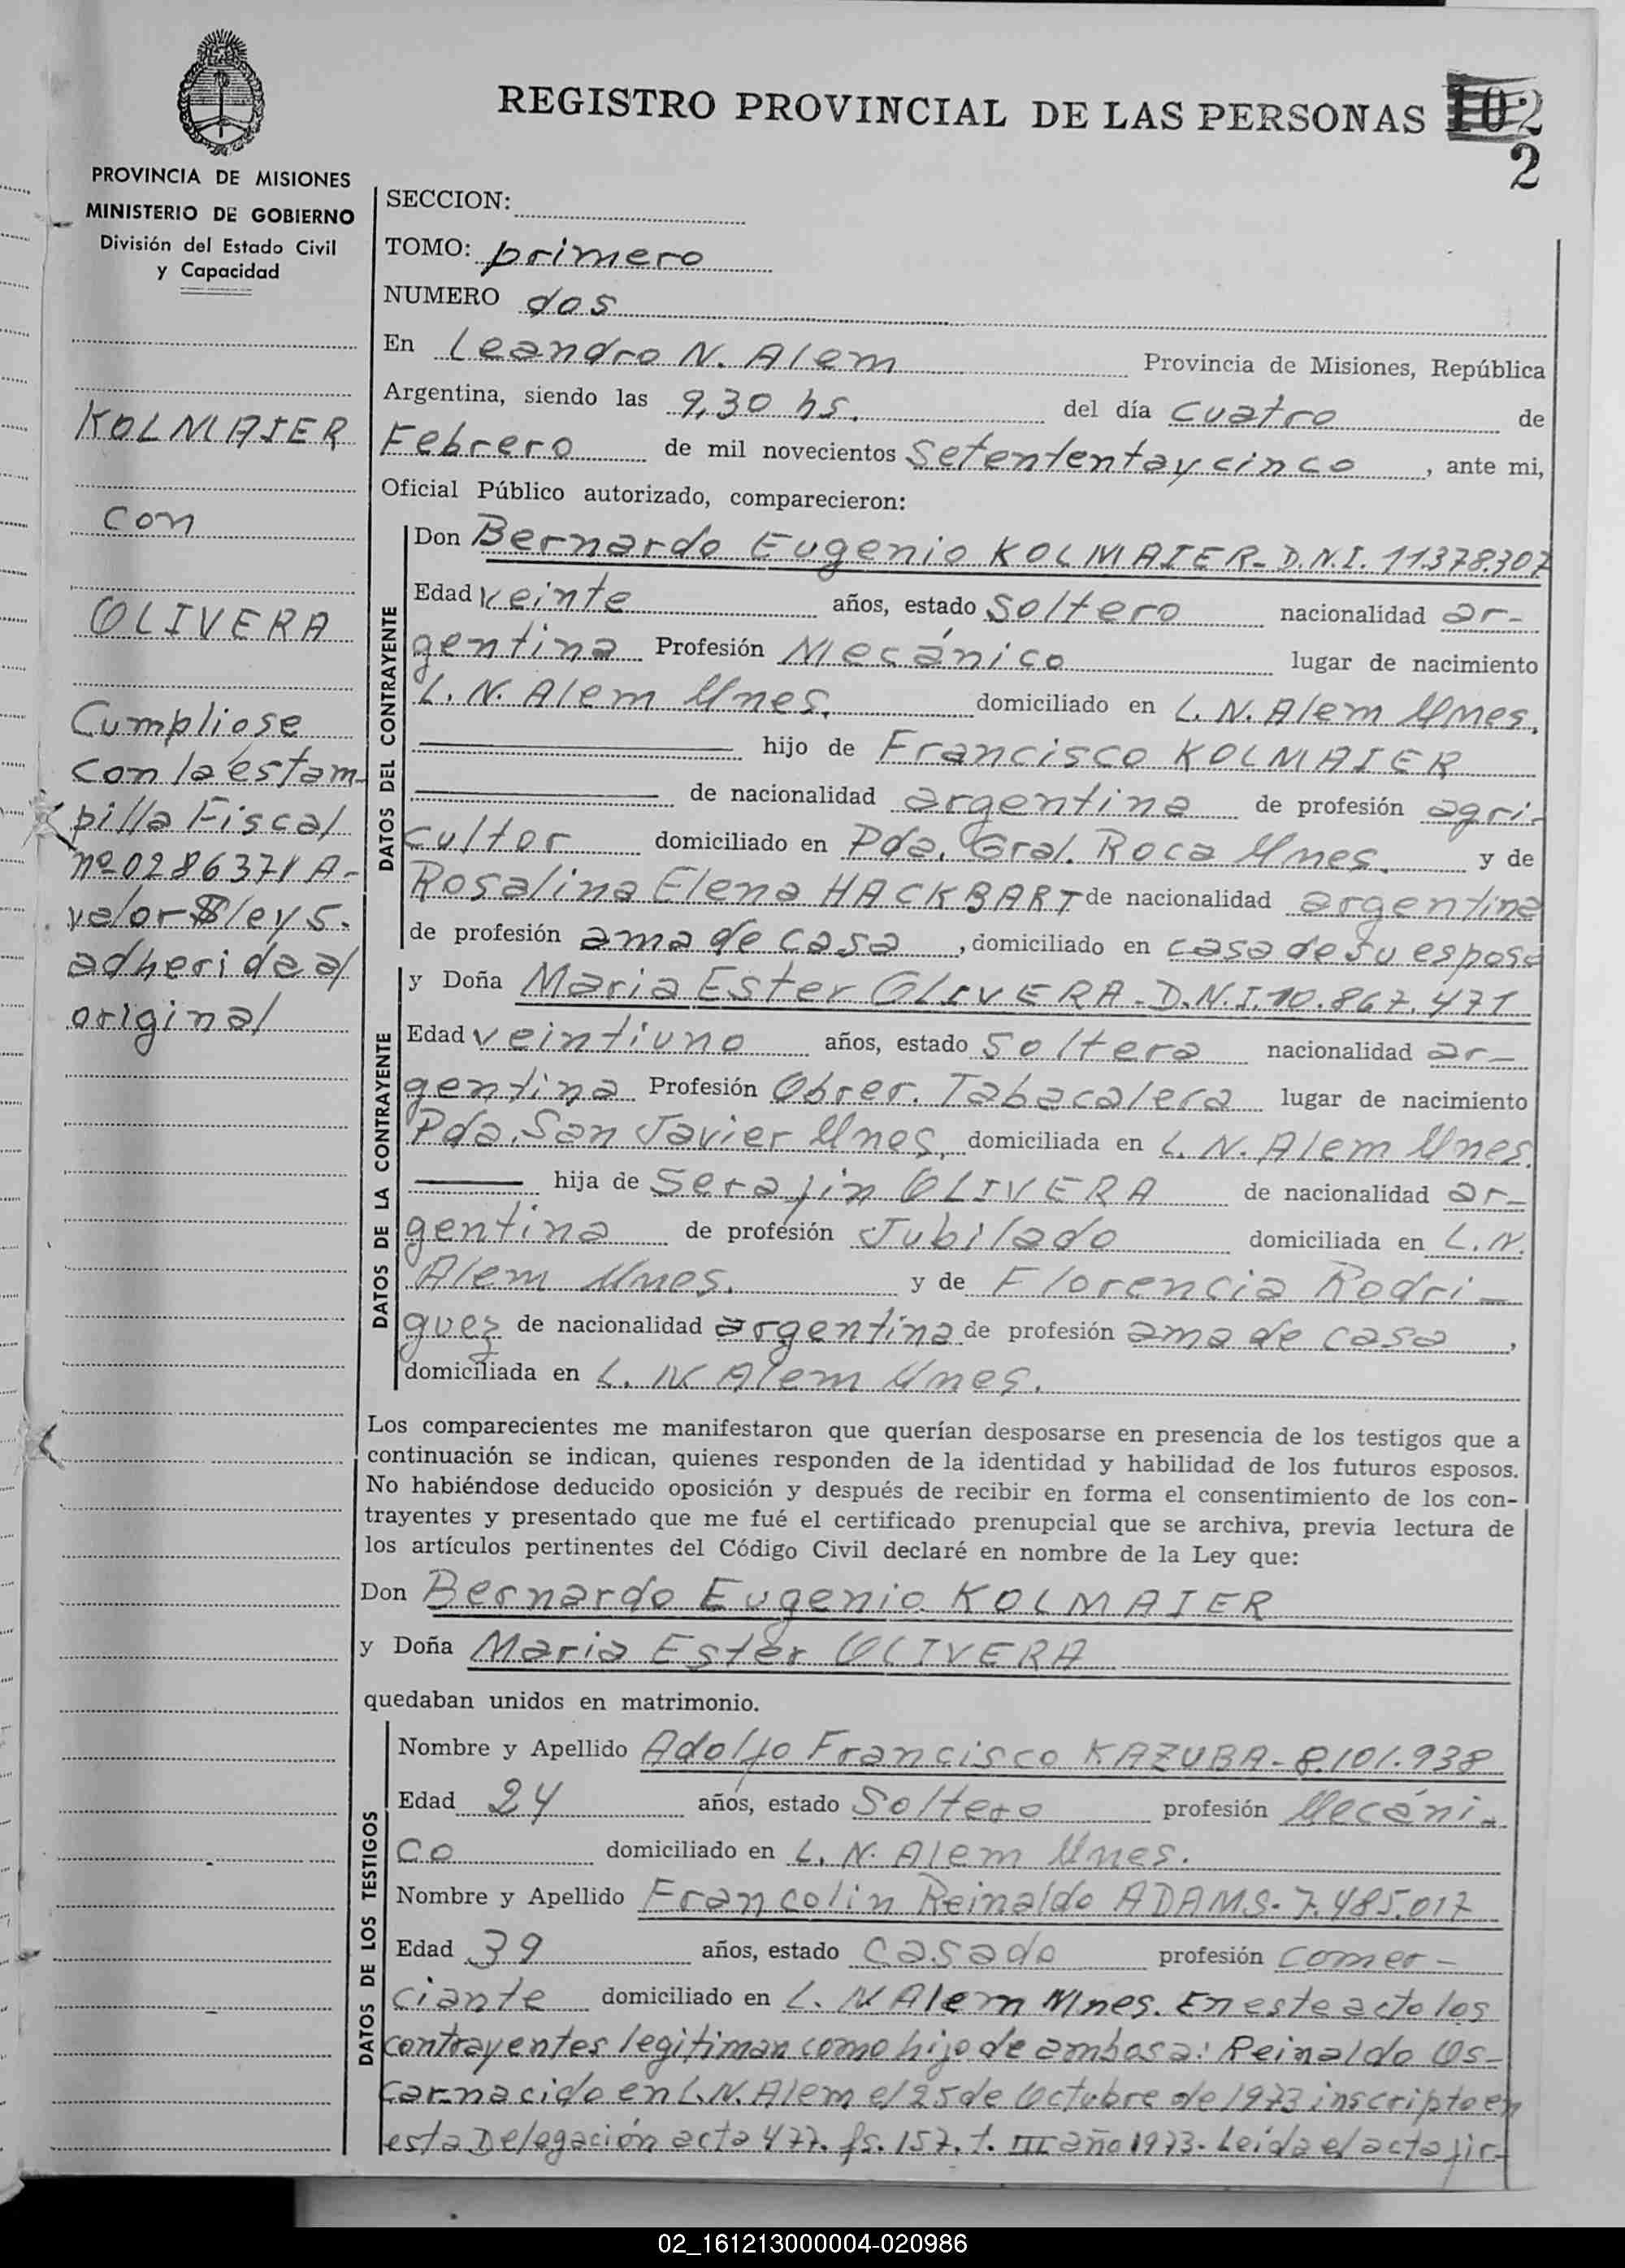 REGISTRO PROVINCIAL DE LAS PERSONAS 102
2
PROVINCIA DE MISIONES
MINISTERIO DE GOBIERNO
División del Estado Civil
y Capacidad
KOLMAIER
con
OLIVERA
Cumpliose
con la estam
pilla Fiscal
nº 0286371 A-
valor $ ley 5.
adherida al
original
SECCION:
TOMO: primero
NUMERO dos
En Leandro N. Alem Provincia de Misiones, República
Argentina, siendo las 9,30 hs. del día cuatro de
Febrero de mil novecientos Setententay cinco, ante mi,
Oficial Público autorizado, comparecieron:
DATOS DEL CONTRAYENTE
Don Bernardo Eugenio KOLMAIER- D.N.I. 11.378.307
Edad veinte años, estado Soltero nacionalidad ar-
gentina Profesión Mecánico lugar de nacimiento
L. N. Alem Mnes. domiciliado en L. N. Alem Mnes.
hijo de Francisco KOLMAIER
de nacionalidad argentina de profesión agri-
cultor domiciliado en Pda. Gral. Roca Mnes. y de
Rosalina Elena HACKBART de nacionalidad argentina
de profesión ama de casa, domiciliado en casa de su esposo
DATOS DE LA CONTRAYENTE
y Doña Maria Ester OLIVERA- D.N.I. 10.867.471
Edad veintiuno años, estado Soltera nacionalidad ar-
gentina Profesión Obrer. Tabacalera lugar de nacimiento
Pda. San Javier Mnes, domiciliada en L. N. Alem Mnes.
hija de Serafin OLIVERA de nacionalidad ar-
gentina de profesión Jubilado domiciliada en L. N.
Alem Mnes. y de Florencia Rodri-
guez de nacionalidad argentina de profesión ama de casa,
domiciliada en L. N Alem Mnes.
Los comparecientes me manifestaron que querían desposarse en presencia de los testigos que a
continuación se indican, quienes responden de la identidad y habilidad de los futuros esposos.
No habiéndose deducido oposición y después de recibir en forma el consentimiento de los con-
trayentes y presentado que me fué el certificado prenupcial que se archiva, previa lectura de
los artículos pertinentes del Código Civil declaré en nombre de la Ley que:
Don Bernardo Eugenio KOLMAIER
y Doña Maria Ester OLIVERA
quedaban unidos en matrimonio.
DATOS DE LOS TESTIGOS
Nombre y Apellido Adolfo Francisco KAZUBA- 8.101.938
Edad 24 años, estado Soltero profesión Mecáni-
co domiciliado en L. N. Alem Mnes.
Nombre y Apellido Francolin Reinaldo ADAMS- 7.485.017
Edad 39 años, estado Casado profesión comer-
ciante domiciliado en L. N Alem Mnes. En este acto los
contrayentes legitiman como hijo de ambos a: Reinaldo Os-
car nacido en L. N. Alem el 25 de Octubre de 1973 inscripto en
esta Delegación acta 477. fs. 157. t. III año 1973. Leida el acta fir-
02_161213000004-020986